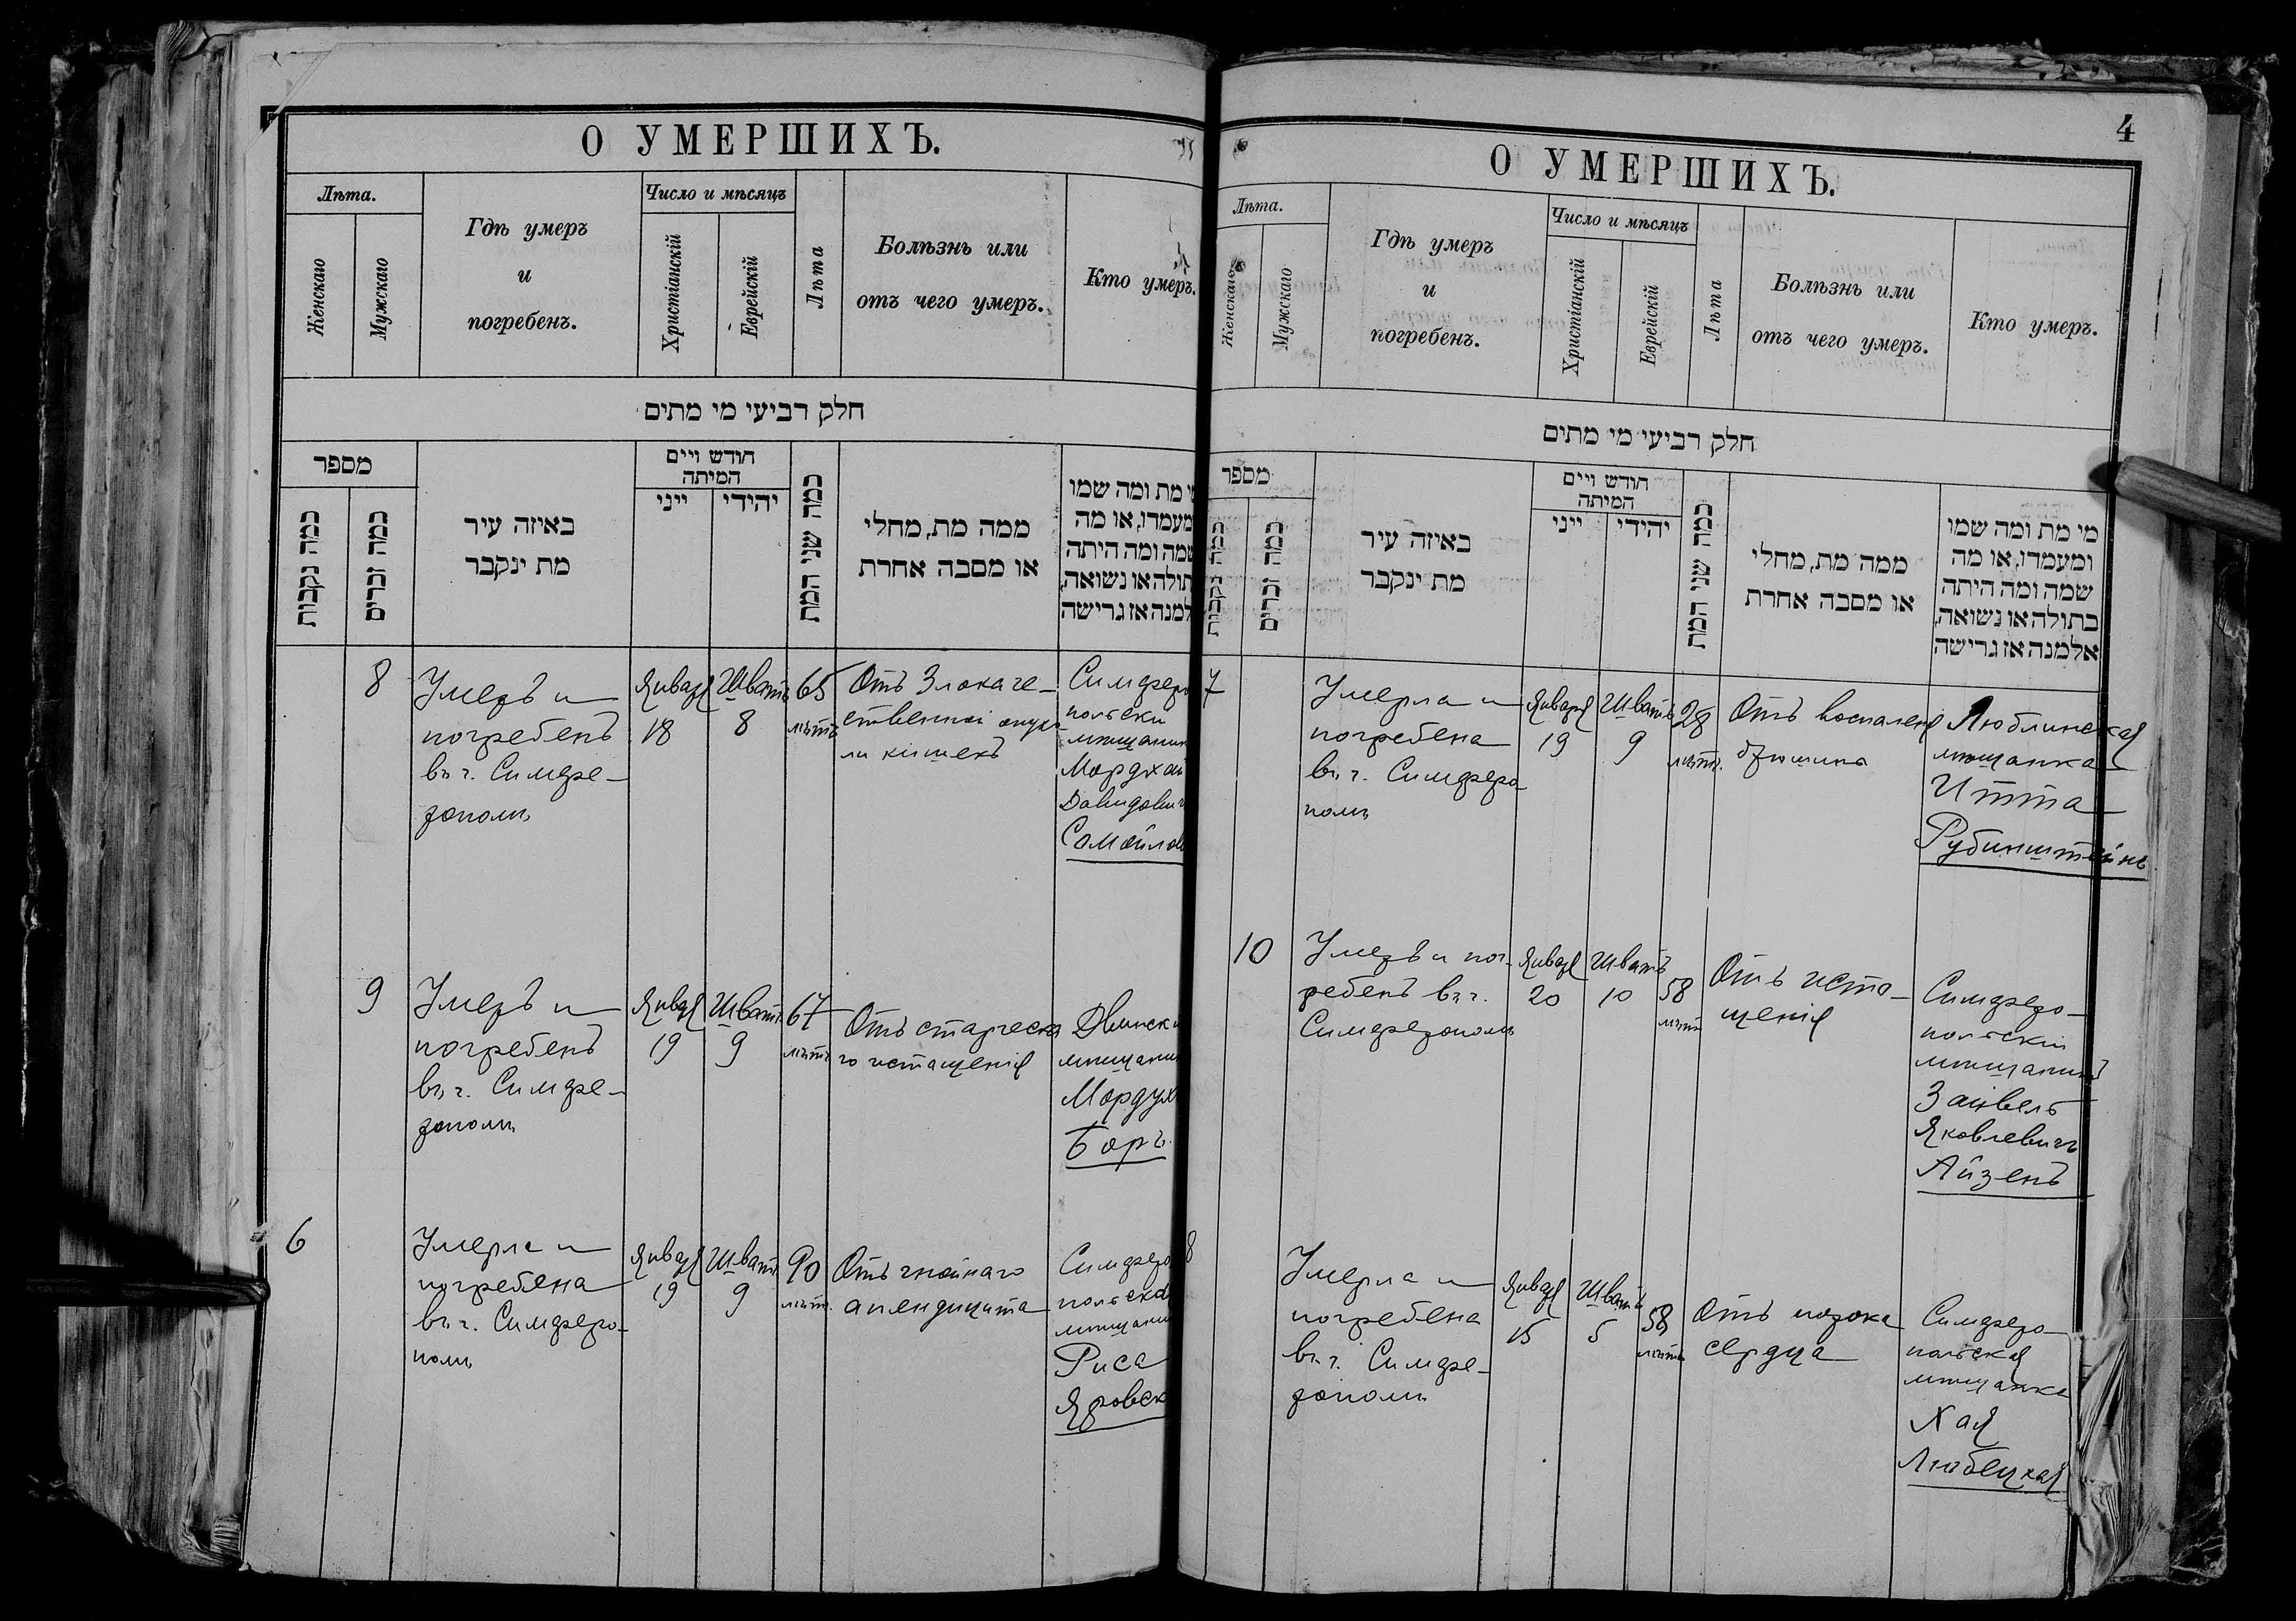 О УМЕРШИХЪ.
Лѣта.
Женскаго
Мужскаго
Гдѣ умеръ
и
погребенъ.
Число и мѣсяцъ
Христіанскій
Еврейскій
Лѣта
Болѣзнь или
отъ чего умеръ.
Кто умеръ.
חלק רביעי מי מתים
מספר
כמה נקבות
כמה זכרים
באיזה עיר
מת ינקבר
חודש ויים
המיתה
ייני
יהידי
כמה שני המת
ממה מת, מחלי
או מסבה אחרת
י מת ומה שמו
מעמדו, או מה
שמה ומה היתה
תולה או נשואה,
למנה אז גרישה
8
Умеръ и
погребенъ
въ г. Симфе-
рополѣ
Января
18
Шватъ
8
65
лѣтъ
Отъ Злокаче-
ственной опухо-
ли кишекъ
Симферо
польски
мѣщанин
Мордхай
Давидович
Самойлов
9
Умеръ и
погребенъ
въ г. Симфе-
рополѣ
Января
19
Шватъ
9
67
лѣтъ
Отъ старческа
го истащенія
Двински
мѣщанин
Мордух
Боръ
6
Умерла и
погребена
въ г. Симферо-
полѣ
Января
19
Шватъ
9
90
лѣтъ
Отъ гнойнаго
апендицита
Симферо
польска
мѣщанк
Риса
Яровск
4
О УМЕРШИХЪ.
Лѣта.
Женскаго
Мужскаго
Гдѣ умеръ
и
погребенъ.
Число и мѣсяцъ
Христіанскій
Еврейскій
Лѣта
Болѣзнь или
отъ чего умеръ.
Кто умеръ.
חלק רביעי מי מתים
מספר
כמה נקבות
כמה זכרים
באיזה עיר
מת ינקבר
חודש ויים
המיתה
ייני
יהידי
כמה שני המת
ממה מת, מחלי
או מסבה אחרת
מי מת ומה שמו
ומעמדו, או מה
שמה ומה היתה
בתולה או נשואה,
אלמנה אז גרישה
7
Умерла и
погребена
въ г. Симферо-
полѣ
Января
19
Шватъ
9
28
лѣтъ.
Отъ воспаленія
брюшины
Люблинская
мѣщанка
Итта
Рубинштейнъ
10
Умеръ и пог-
ребенъ въ г.
Симферополѣ
Января
20
Шватъ
10
58
лѣтъ
Отъ исто-
щенія
Симферо-
польскій
мѣщанинъ
Зайвель
Яковлевичъ
Айзенъ
8
Умерла и
погребена
въ г. Симфе-
рополѣ
Января
15
Шватъ
5
58
лѣтъ
Отъ порока
сердца
Симферо-
польская
мѣщанка
Хая
Любецкая